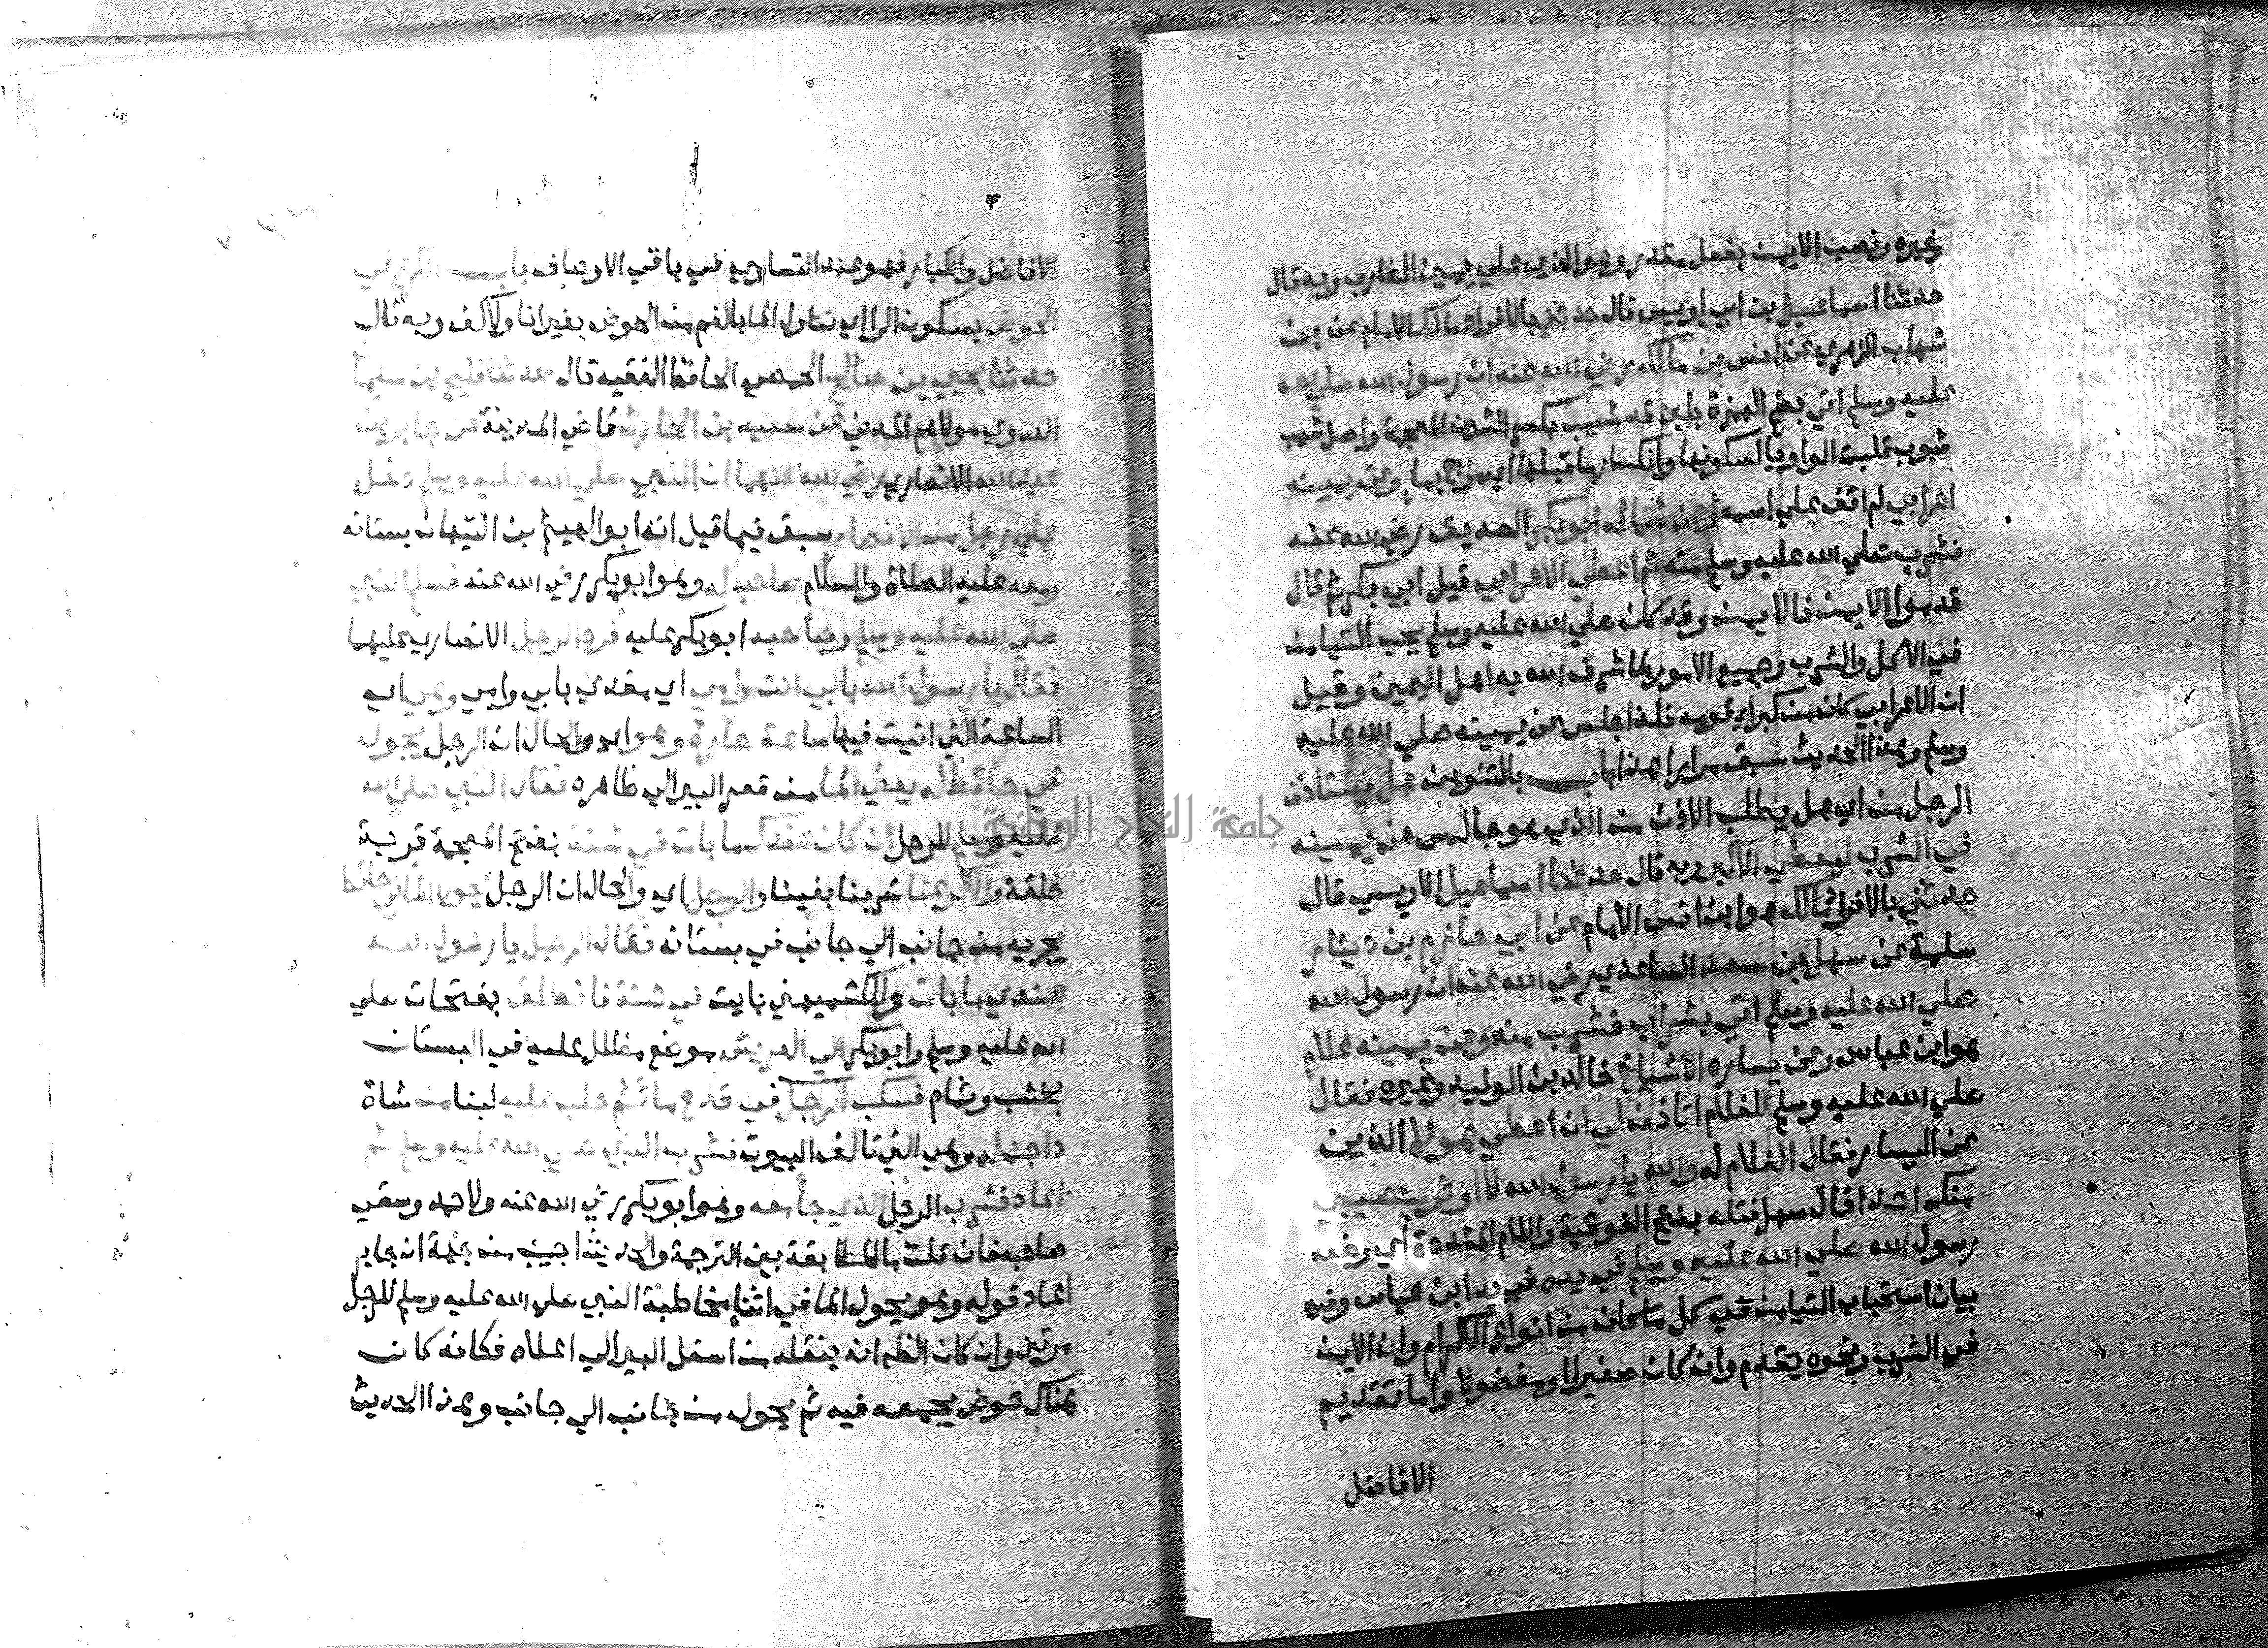 وغيره ونصب الايمن بفعل مقدر وهو الذي علي يمين الضارب وبه قال
حدثنا اسماعيل بن ابي اويس قال حدثني بالافراد مالك الامام عن بن
شهاب الزهري عن انس بن مالك رضي الله عنه ان رسول الله صلي الله
عليه وسلم اتي بضم الهمزة بلبن قد شيب بكسر الشين المعجمة واصل شيب
شوب قلبت الواو يا لسكونها وانكسار ما قبلها اي مزج بما وعن يمينه
اعرابي لم اقف علي اسمه وعن شماله ابو بكر الصديق رضي الله عنه
فشرب صلي الله عليه وسلم منه ثم اعطي الاعرابي قبل ابي بكر ثم قال
قدموا الايمن فالايمن وقد كان صلي الله عليه وسلم يحب التيامن
في الاكل والشرب وجميع الامور لما شرف الله به اهل اليمين وقيل
ان الاعرابي كان من كبراي قومه فلذا جلس عن يمينه صلي الله عليه
وسلم وهذا الحديث سبق مرارا هذا باب بالتنوين هل يستاذن
الرجل من اي هل يطلب الاذن من الذي هو جالس عن يمينه
في الشرب ليعطي الاكبر وبه قال حدثنا اسماعيل الاويسي قال
حدثني بالافراد مالك هو ابن انس الامام عن ابي حازم بن دينار
سلمة عن سهل بن سعد الساعدي رضي الله عنه ان رسول الله
صلي الله عليه وسلم اتي بشراب فشرب منه وعن يمينه غلام
هو ابن عباس وعن يساره الاشياخ خالد بن الوليد وغيره فقال
صلي الله عليه وسلم للغلام اتاذن لي ان اعطي هولا الذين
عن اليسار فقال الغلام له والله يا رسول الله لا اوثر بنصيبي
منك احدا قال سهل فتله بفتح الفوقية واللام المشددة اي وضعه
رسول الله صلي الله عليه وسلم في يده في يد ابن عباس وفيه
بيان استحباب التيامن في كل ما كان من انواع الاكرام وان الايمن
في الشرب ونحوه يقدم وان كان صغيرا او مفضولا واما تقديم
الافاضل
الافاضل والكبار فهو عند التساوي في باقي الاوصاف باب الكرع في
الحوض بسكون الرا اي تناول الما بالفم من الحوض بغير انا ولا كف وبه قال
حدثنا يحيي بن صالح الحمصي الحافظ الفقيه قال حدثنا فليح بن سليمان
العدوي مولاهم المدني عن سعيد بن الحارث قاضي المدينة عن جابر بن
عبد الله الانصاري رضي الله عنهما ان النبي صلي الله عليه وسلم دخل
علي رجل من الانصار سبق فيما قيل انه ابو الهيثم بن التيهان بستانه
ومعه عليه الصلاة والسلام صاحب له وهو ابو بكر رضي الله عنه فسلم النبي
صلي الله عليه وسلم وصاحبه ابو بكر عليه فرد الرجل الانصاري عليهما
فقال يا رسول الله بابي انت وامي اي مفدي بابي وامي وهي اي
الساعة التي اتيت فيها ساعة حارة وهو اي والحال ان الرجل يحول
في حائط له يعني الما من قعر البير الي ظاهره فقال النبي صلي الله
عليه وسلم للرجل ان كان عندك ما بات في شنة بفتح المعجمة قربة
خلقة والا كرعنا شربنا بفينا والرجل اي والحال ان الرجل يحول الما في حائط
يجريه من جانب الي جانب في بستانه فقال الرجل يا رسول الله
عندي ما بات وللكشميهني بايت في شنة فانطلق بفتحات صلي
الله عليه وسلم وابو بكر الي العريش موضع مظلل عليه في البستان
بخشب وثمام فسكب الرجل في قدح ما ثم حلب عليه لبنا من شاة
داجن له وهي التي تالف البيوت فشرب النبي صلي الله عليه وسلم ثم
اعاد فشرب الرجل الذي جا معه وهو ابو بكر رضي الله عنه ولاحمد وسقي
صاحبه فان قلت ما المطابقة بين الترجمة والحديث اجيب من جهة ان جابر
اعاد قوله وهو يحول الما في اثنا مخاطبة النبي صلي الله عليه وسلم للرجل
مرتين وان كان الظاهر انه ينقله من اسفل البير الي اعلاه فكانه كان
هناك حوض يجمعه فيه ثم يحوله من جانب الي جانب وهذا الحديث
جامعة النجاح الوطنية